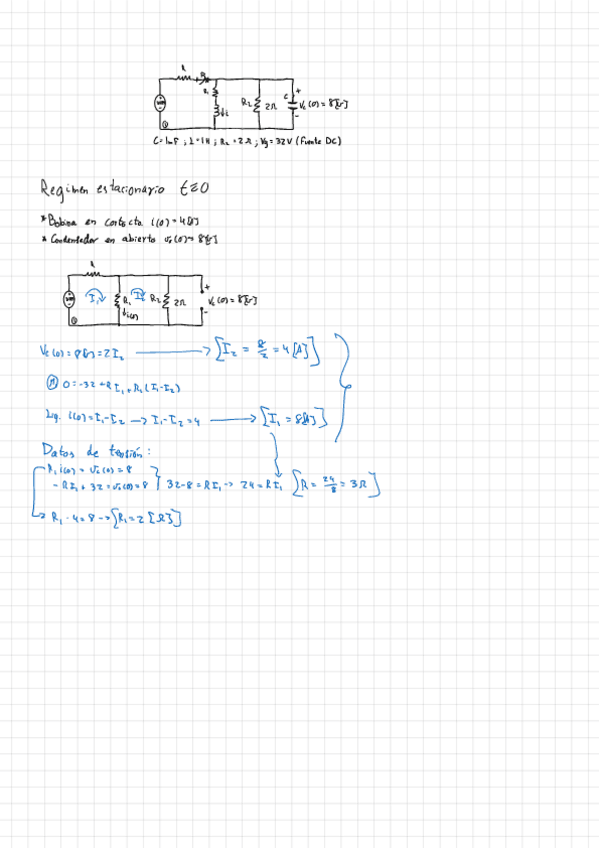 R
R₁
↓i_L
R₂
2Ω
C
+
V_c(0) = 8[V]
-
C=1mF ; L=1H ; R₂=2Ω ; Vg=32V (Fuente DC)
Regimen estacionario t≤0
* Bobina en cortocto i(0)=4[A]
* Condensador en abierto v_c(0)=8[V]
R
I₁
R₁
I₂
R₂
2Ω
↓i(0)
+
V_c(0) = 8[V]
-
V_c(0) = 8[V] = 2I₂ → [I₂ = 8/2 = 4[A]]
0 = -32 + R I₁ + R₁(I₁-I₂)
i(0) = I₁-I₂ → I₁-I₂ = 4 → [I₁ = 8[A]]
Datos de tensión:
R₁ i(0) = v_c(0) = 8
-R I₁ + 32 = v_c(0) = 8 } 32-8 = R I₁ → 24 = R I₁ [R = 24/8 = 3Ω]
R₁·4 = 8 → [R₁ = 2 [Ω]]